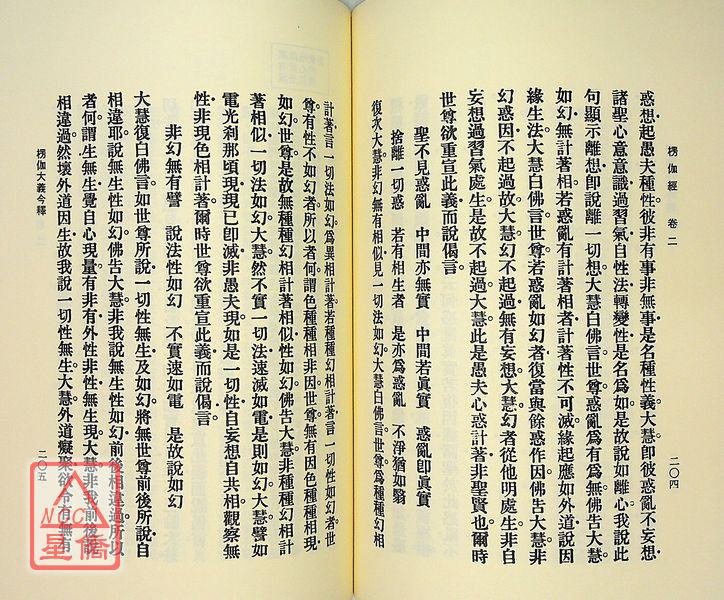 楞伽經 卷二
二〇四
惑想起愚夫種性彼非有事非無事是名種性義大慧即彼惑亂不妄想
諸聖心意意識過習氣自性法轉變性是名為如是故說如離心我說此
句顯示離想即說離一切想大慧白佛言世尊惑亂為有為無佛告大慧
如幻無計著相若惑亂有計著相者計著性不可滅緣起應如外道說因
緣生法大慧白佛言世尊若惑亂如幻者復當與餘惑作因佛告大慧非
幻惑因不起過故大慧幻不起過無有妄想大慧幻者從他明處生非自
妄想過習氣處生是故不起過大慧此是愚夫心惑計著非聖賢也爾時
世尊欲重宣此義而說偈言
聖不見惑亂 中間亦無實 中間若眞實 惑亂即眞實
捨離一切惑 若有相生者 是亦為惑亂 不淨猶如翳
復次大慧非幻無有相似見一切法如幻大慧白佛言世尊為種種幻相
計著言一切法如幻為異相計著若種種幻相計著言一切性如幻者世
尊有性不如幻者所以者何謂色種種相非因世尊無有因色種種相現
如幻世尊是故無種種幻相計著相似性如幻佛告大慧非種種幻相計
著相似一切法如幻大慧然不實一切法速滅如電是則如幻大慧譬如
電光刹那頃現現已即滅非愚夫現如是一切性自妄想自共相觀察無
性非現色相計著爾時世尊欲重宣此義而說偈言
非幻無有譬 說法性如幻 不實速如電 是故說如幻
大慧復白佛言如世尊所說一切性無生及如幻將無世尊前後所說自
相違耶說無生性如幻佛告大慧非我說無生性如幻前後相違過所以
者何謂生無生覺自心現量有非有外性非性無生現大慧非我前後說
相違過然壞外道因生故我說一切性無生大慧外道癡聚欲令有無有
楞伽大義今釋 卷二
二〇五
NCC
星僑